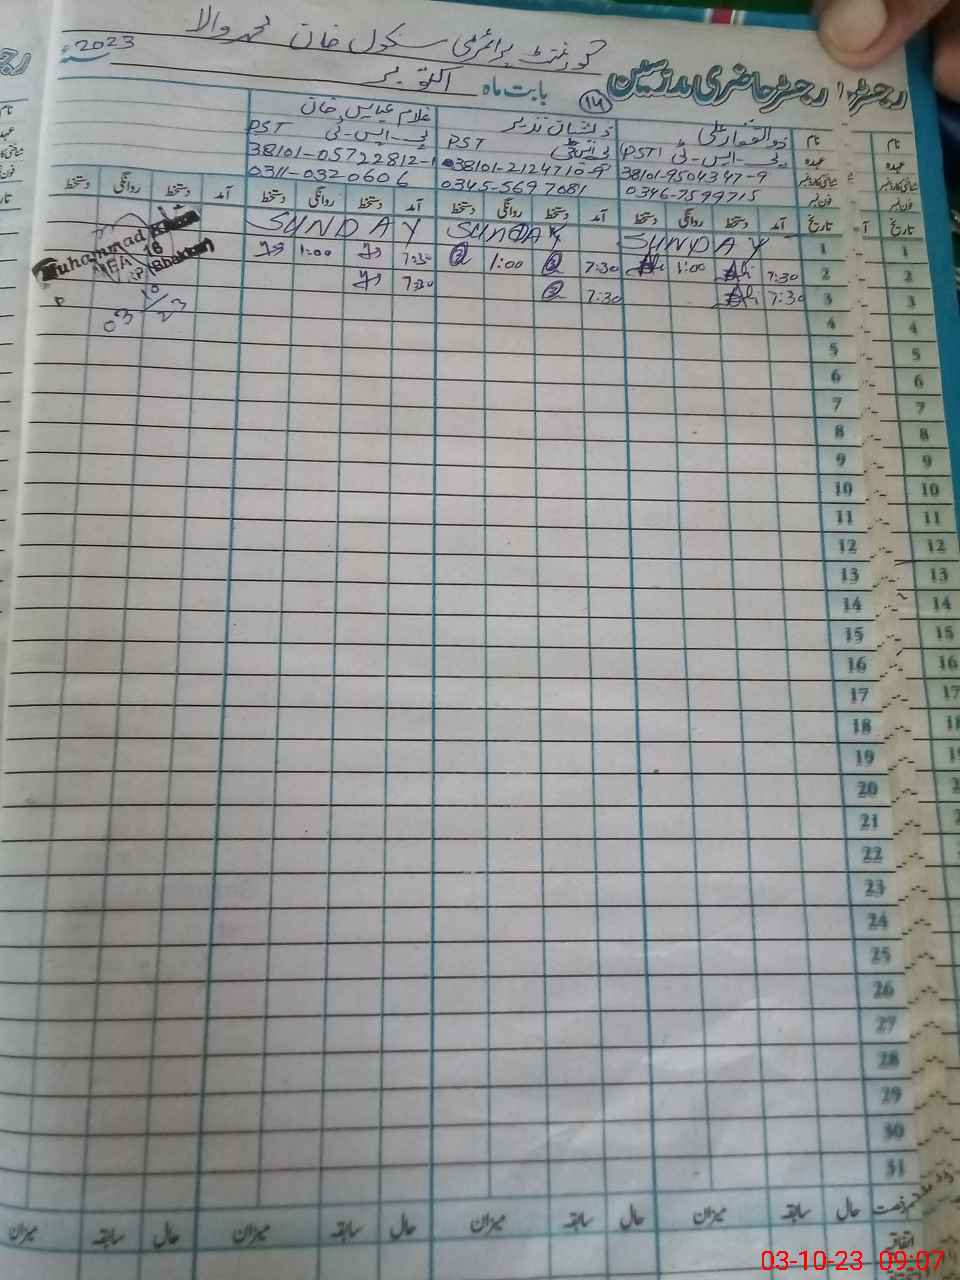 گورنمنٹ پرائمری سکول خان محمد والا
رجسٹر حاضری مدرسین
۱۴
بابت ماہ اکتوبر سنہ 2023ء
نام ذوالفقار علی ذیشان نذیر غلام عباس خان
عہدہ پی۔ایس۔ٹی (PST) پی ایس ٹی PST پی۔ایس۔ٹی PST
شناختی کارڈ نمبر 38101-9504347-9 38101-2124710-9 38101-05722812-1
فون نمبر 0346-7599715 0345-5697081 0311-0320606
تاریخ آمد دستخط روانگی دستخط آمد دستخط روانگی دستخط آمد دستخط روانگی دستخط آمد دستخط روانگی دستخط
1 SUNDAY SUNDAY SUNDAY
2 7:30 Ali 1:00 Ali 7:30 1:00 7:30 1:00
3 7:30 Ali 7:30 7:30
Muhammad
AEA
18
(Bhakkar)
03/10/23
4
5
6
7
8
9
10
11
12
13
14
15
16
17
18
19
20
21
22
23
24
25
26
27
28
29
30
31
حال سابقہ میزان حال سابقہ میزان حال سابقہ میزان حال سابقہ میزان
اتفاقیہ
03-10-23 09:07